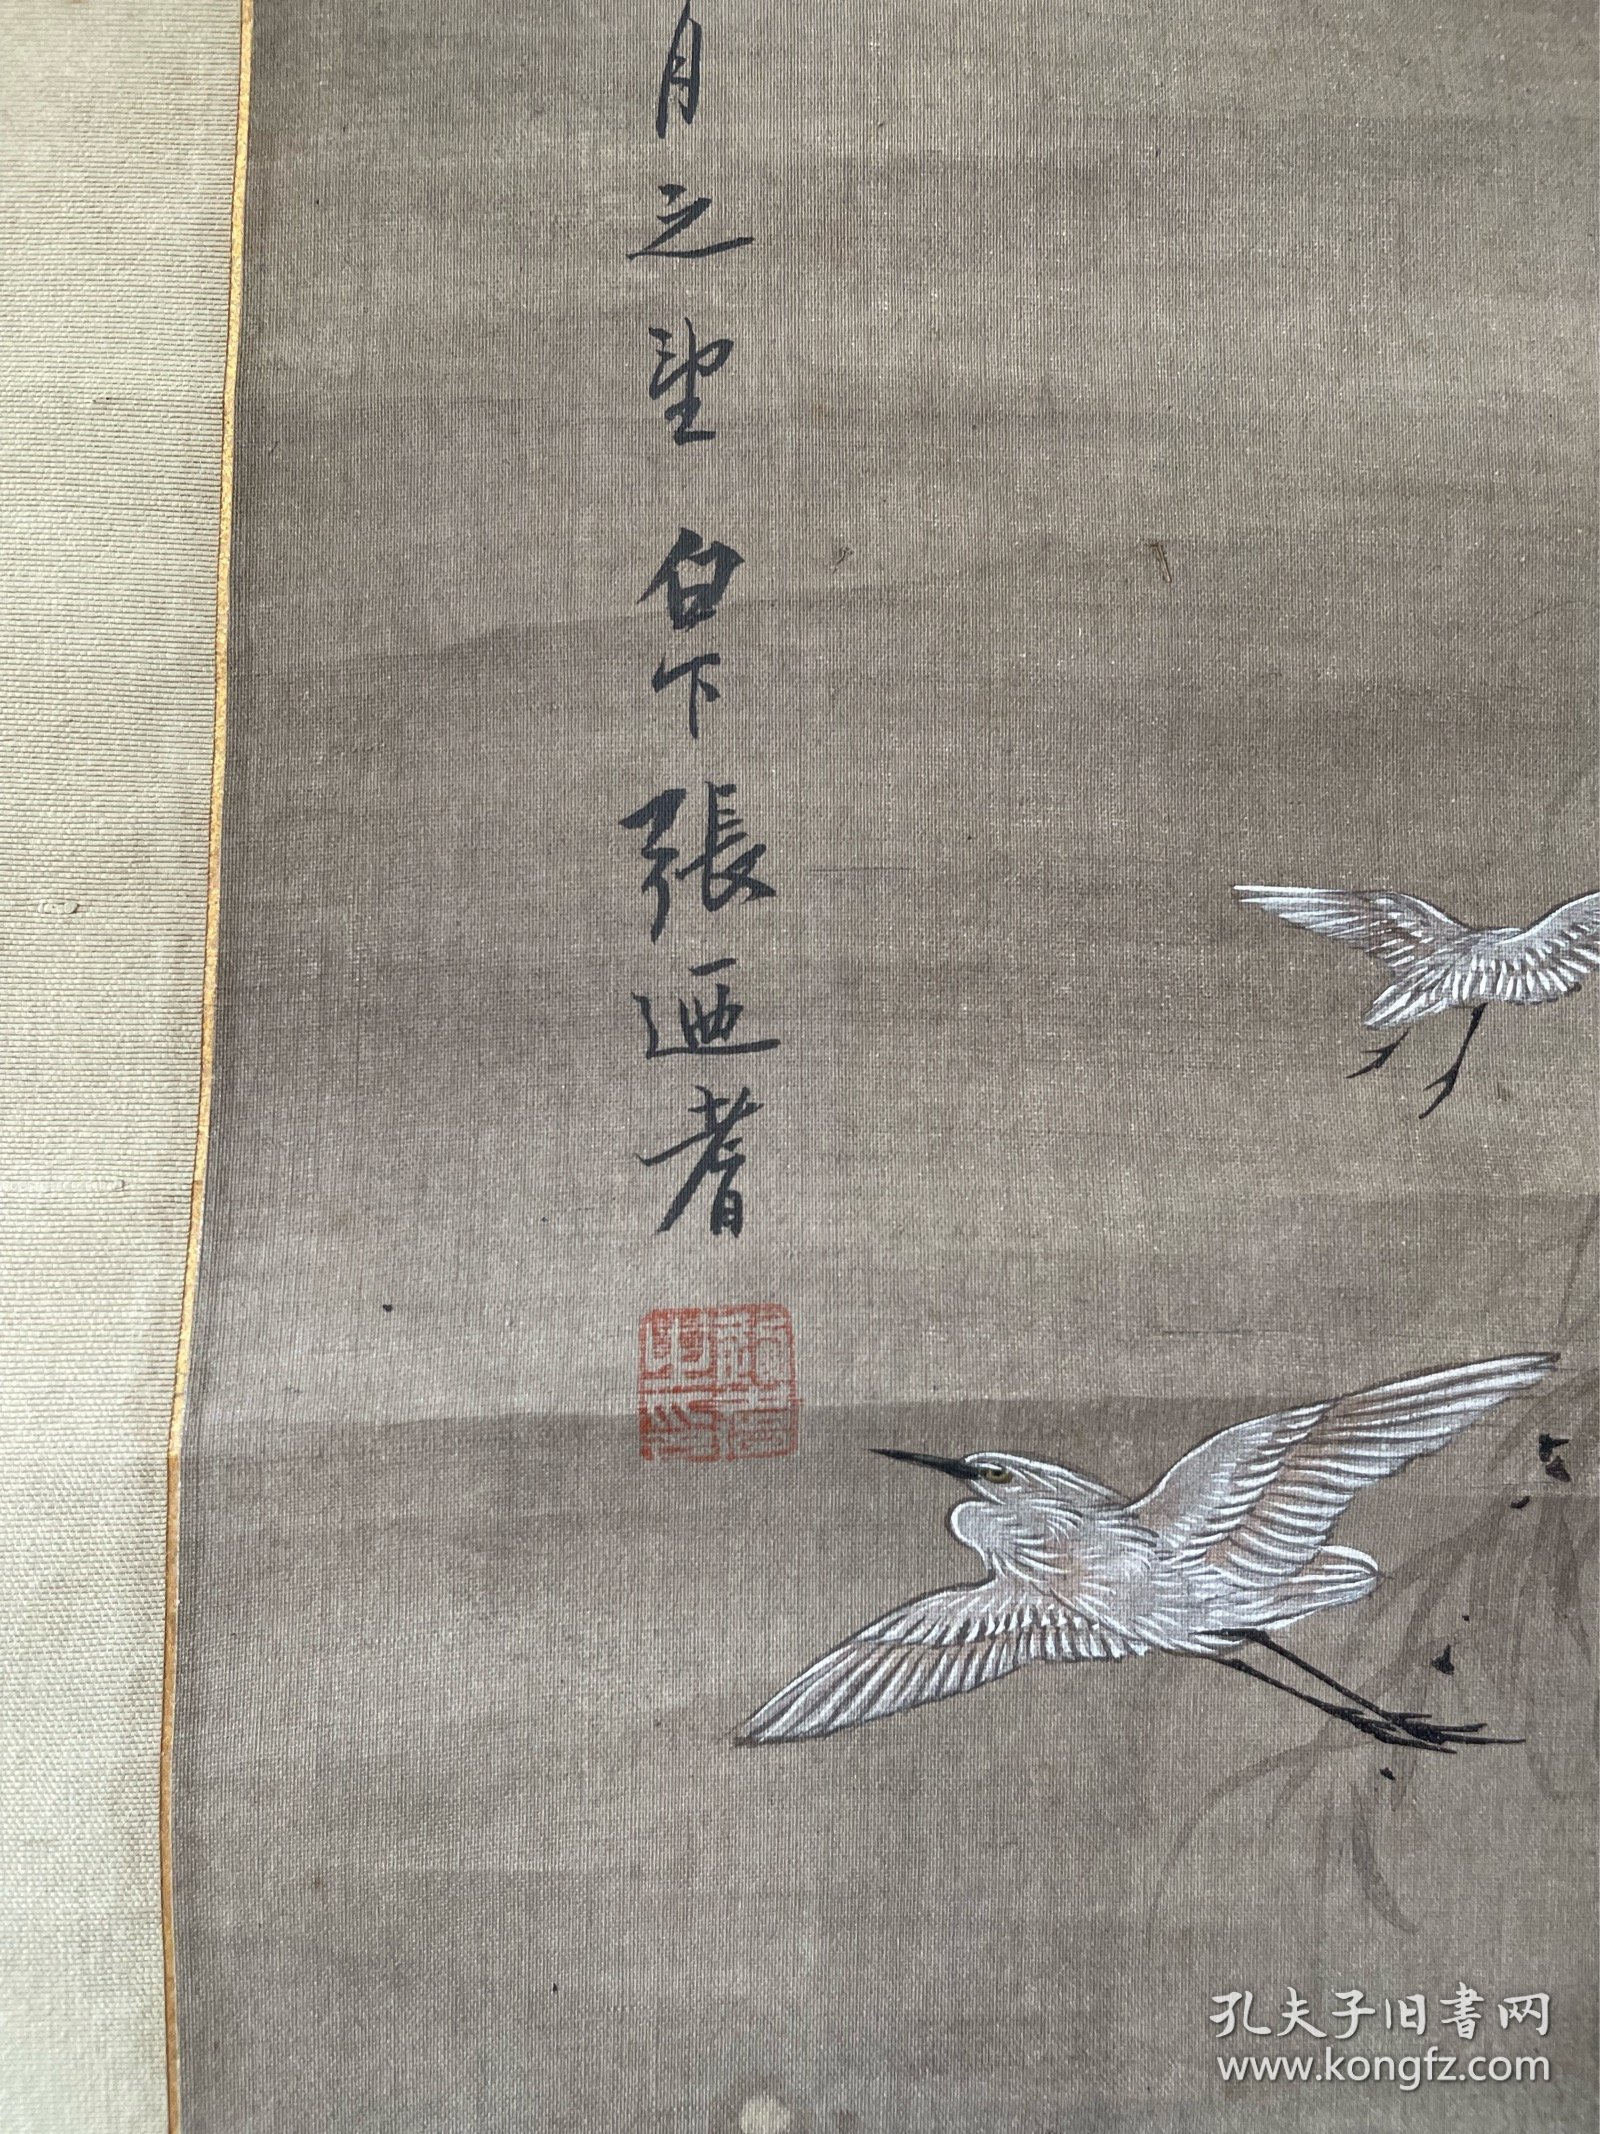 月之望 白下張迺耆
孔夫子旧書网
www.kongfz.com